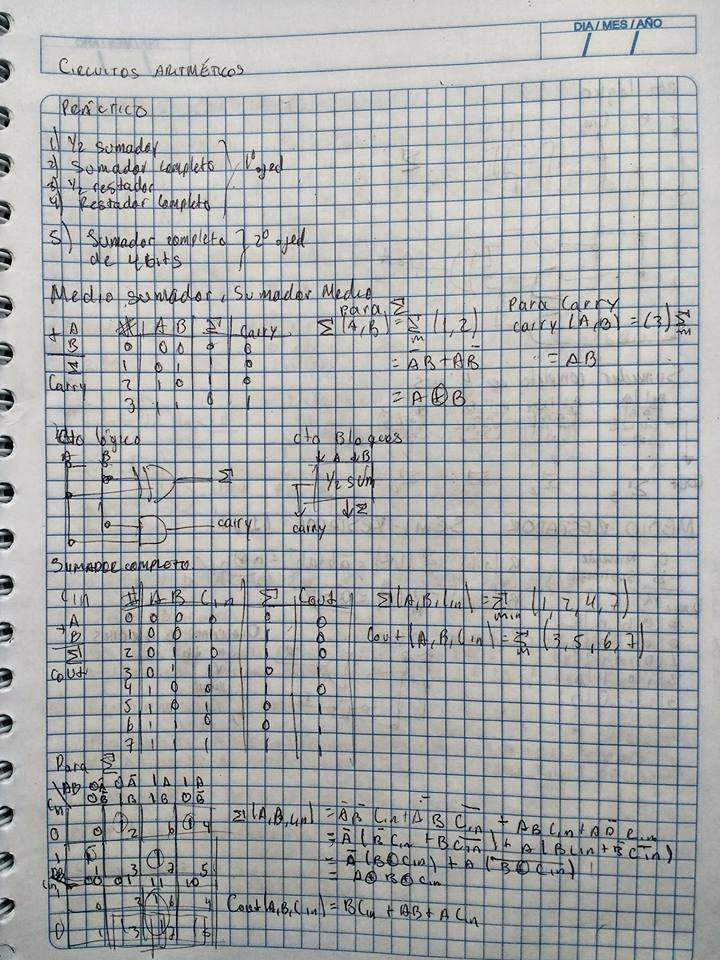 DIA / MES / AÑO
CIRCUITOS ARITMÉTICOS
PRÁCTICO
1) 1/2 sumador
2) Sumador completo
3) 1/2 restador
4) Restador completo
5) Sumador completo
de 4bits
Medio sumador, Sumador Medio
+ A
B
Σ
Carry
# A B Σ Carry
0 0 0 0 0
1 0 1 1 0
2 1 0 1 0
3 1 1 0 1
Para Σ
Σ(A,B) = Σm (1,2)
= A̅B + AB̅
= A⊕B
Para Carry
carry (A,B) = (3) Σm
= AB
Cto lógico
A B
Σ
carry
cto Bloques
↓A ↓B
1/2 sum
↓Σ
carry
SUMADOR COMPLETO
Cin
+ A
B
Σ
Cout
# A B Cin Σ Cout
0 0 0 0 0 0
1 0 0 1 1 0
2 0 1 0 1 0
3 0 1 1 0 1
4 1 0 0 1 0
5 1 0 1 0 1
6 1 1 0 0 1
7 1 1 1 1 1
Σ(A,B,Cin) = Σmin (1,2,4,7)
Cout(A,B,Cin) = Σm (3,5,6,7)
Para Σ
Σ(A,B,Cin) = A̅B̅Cin + A̅BC̅i̅n̅ + ABCin + AB̅C̅i̅n̅
= A̅(B̅Cin + BC̅i̅n̅) + A(BCin + B̅C̅i̅n̅)
= A̅(B⊕Cin) + A(B̅⊕̅C̅i̅n̅)
= A⊕B⊕Cin
00 01 11 10
Cout(A,B,Cin) = BCin + AB + ACin